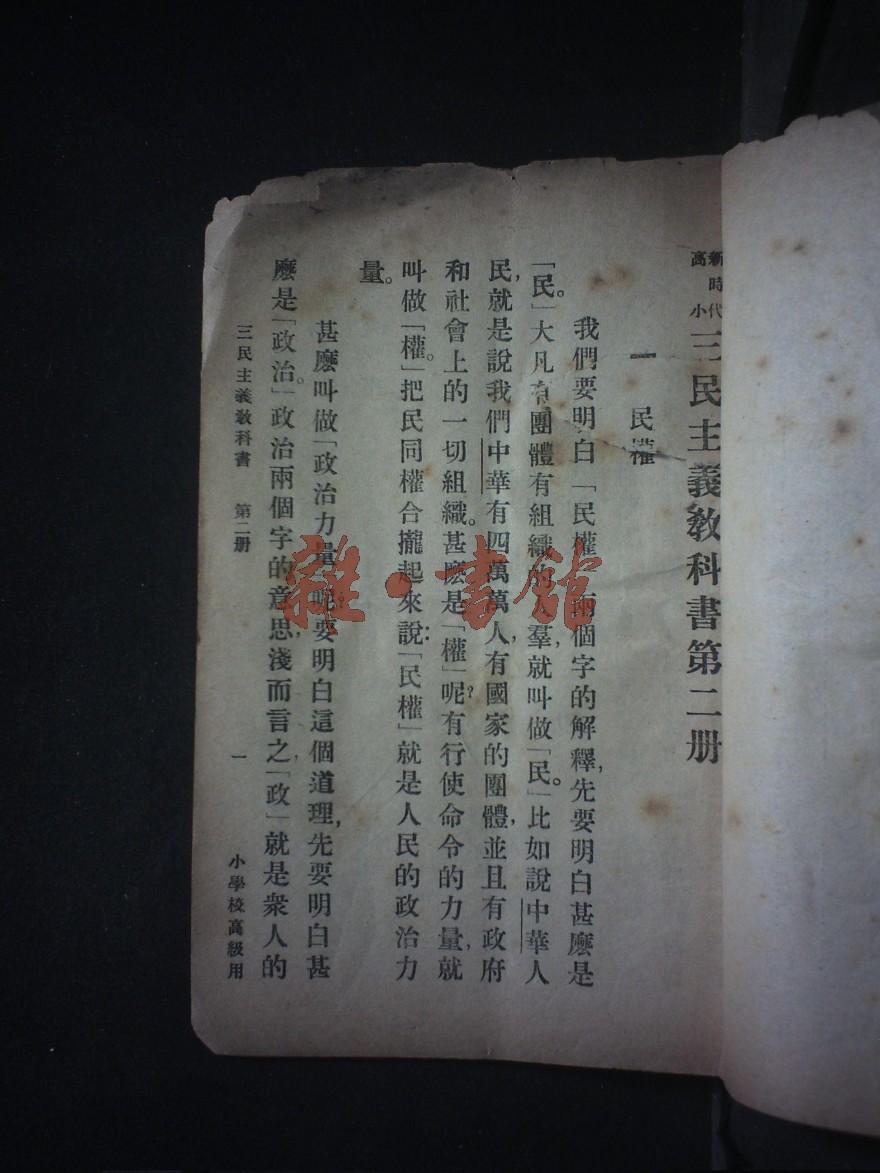 新時代
高小
三民主義教科書第二册
一 民權
我們要明白「民權」兩個字的解釋,先要明白甚麽是
「民。」大凡有團體有組織的人羣,就叫做「民。」比如說中華人
民,就是說我們中華有四萬萬人,有國家的團體,並且有政府
和社會上的一切組織。甚麽是「權」呢?有行使命令的力量,就
叫做「權。」把民同權合攏起來說:「民權」就是人民的政治力
量。
甚麽叫做「政治力量」呢?要明白這個道理,先要明白甚
麽是「政治。」政治兩個字的意思,淺而言之,「政」就是衆人的
三民主義教科書 第二册 一 小學校高級用
雜·書館